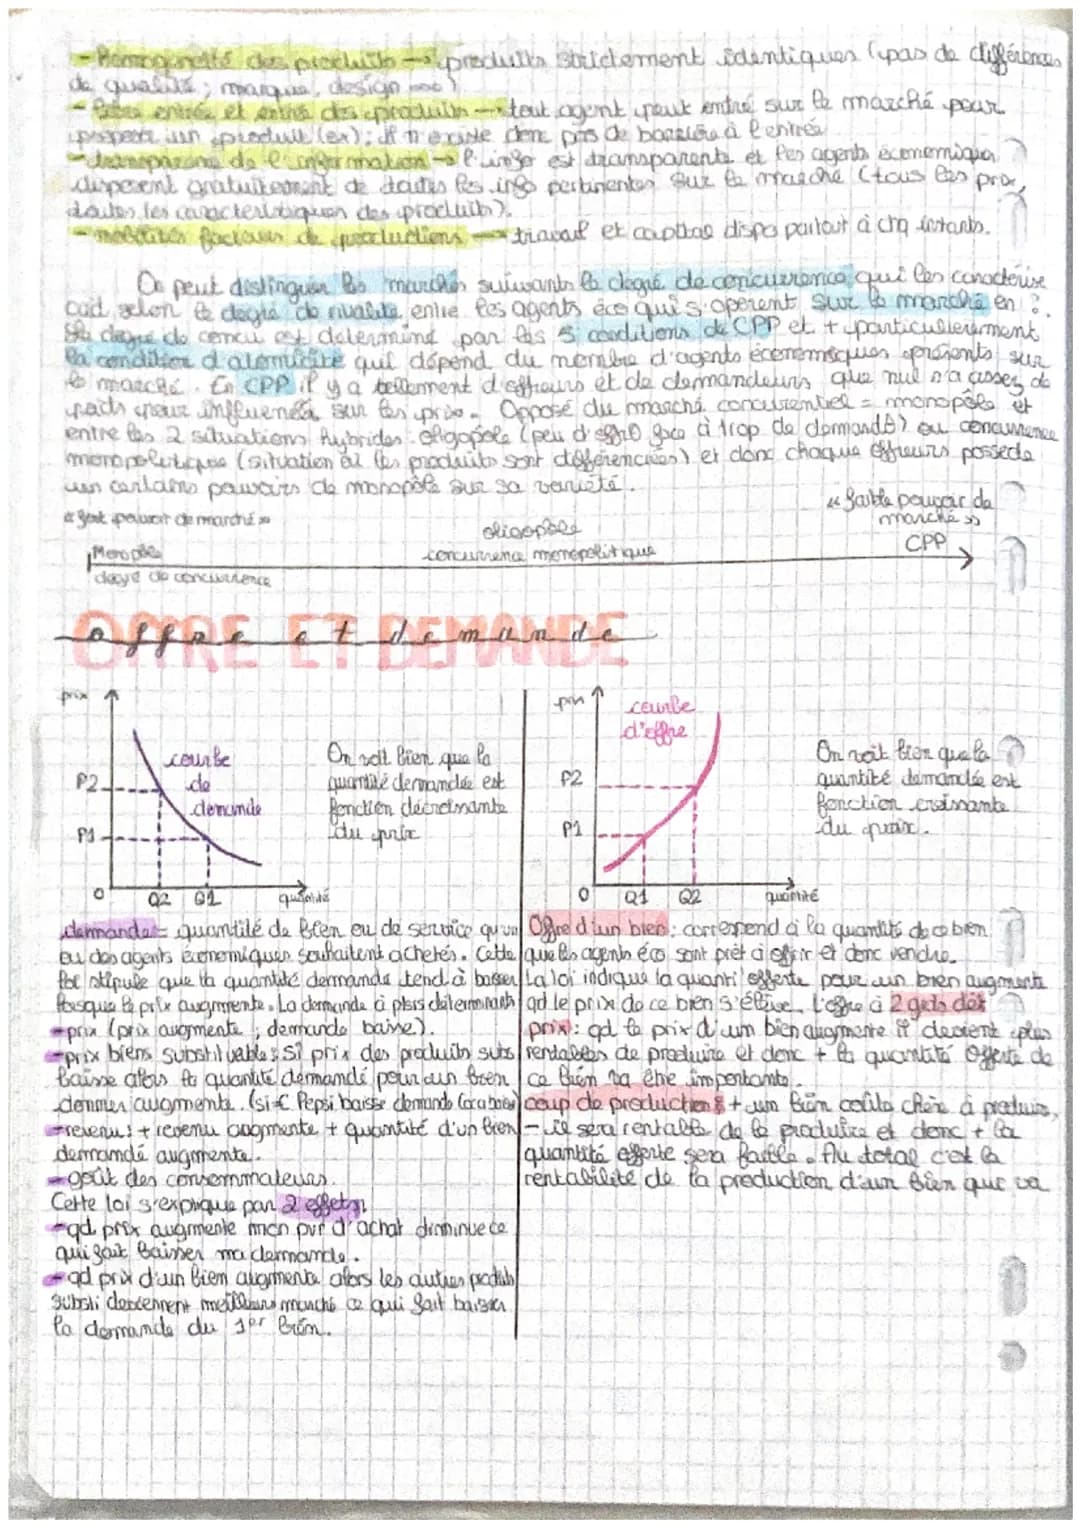 - Homogénéité des produits → produits strictement identiques (pas de différences
de qualité, marque, design ...)
- libre entrée et sortie des produits → tout agent peut entré sur le marché pour
proposer un produit (ex); il n'existe donc pas de barrière à l'entrée
- transparence de l'information → l'info est transparente et les agents économiques
disposent gratuitement de toutes les info pertinentes sur le marché (tous les prix,
toutes les caractéristiques des produits).
- mobilités facteurs de productions → travail et capital dispo partout à chq instants.
On peut distinguer les marchés suivants le degré de concurrence qui les caractérise
cad selon le degré de rivalité entre les agents éco qui s'opèrent sur le marché en ?.
Le degré de concu est déterminé par les 5 conditions de CPP et + particulièrement
la condition d'atomicité qui dépend du nombre d'agents économiques présents sur
le marché. En CPP il y a tellement d'offreurs et de demandeurs que nul n'a assez de
poids pour influencer sur les prix. Opposé du marché concurrentiel = monopole et
entre les 2 situations hybrides : oligopole (peu d'offre face à trop de demande) ou concurrence
monopolistique (situation où les produits sont différenciés) et donc chaque offreurs possède
un certains pouvoirs de monopole sur sa variété.
« fort pouvoir de marché »
« faible pouvoir de
marché »
oligopole
Monopole
concurrence monopolitique
CPP
degré de concurrence
OFFRE ET DEMANDE
offre et demande
prix
P2
P1
0
Q2 Q1
quantité
courbe
de
demande
On voit bien que la
quantité demandée est
fonction décroissante
du prix
prix
P2
P1
0
Q1 Q2
quantité
courbe
d'offre
On voit bien que la
quantité demandée est
fonction croissante
du prix.
demande = quantité de bien ou de service qu'un
ou des agents économiques souhaitent achetés. Cette
loi stipule que la quantité demande tend à baisser
lorsque le prix augmente. La demande à plsrs déterminants
- prix (prix augmente ; demande baisse).
- prix biens substituables : si prix des produits subs
baisse alors la quantité demandé pour un bien
donner augmente. (si € Pepsi baisse demande Coca baisse)
- revenu : + revenu augmente + quantité d'un bien
demandé augmente.
- goût des consommateurs.
Cette loi s'explique par 2 effets
- qd prix augmente mon pvr d'achat diminue ce
qui fait baisser ma demande.
- qd prix d'un bien augmente alors les autres produits
substi deviennent meilleurs marché ce qui fait baisser
la demande du 1er bien.
Offre d'un bien : correspond à la quantité de ce bien
que les agents éco sont prêt à offrir et donc vendre.
La loi indique la quanti offerte pour un bien augmente
qd le prix de ce bien s'élève. L'offre à 2 gds dét
prix : qd le prix d'un bien augmente il devient plus
rentables de produire et donc + la quantité offerte de
ce bien va être importante.
coup de production : + un bien coûte chère à produire,
- il sera rentable de le produire et donc + la
quantité offerte sera faible. Au total c'est la
rentabilité de la production d'un bien que va